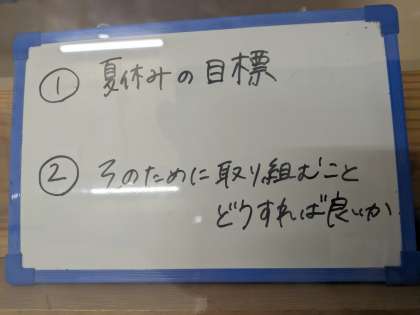 ① 夏休みの目標
② そのために取り組むこと
どうすれば良いか